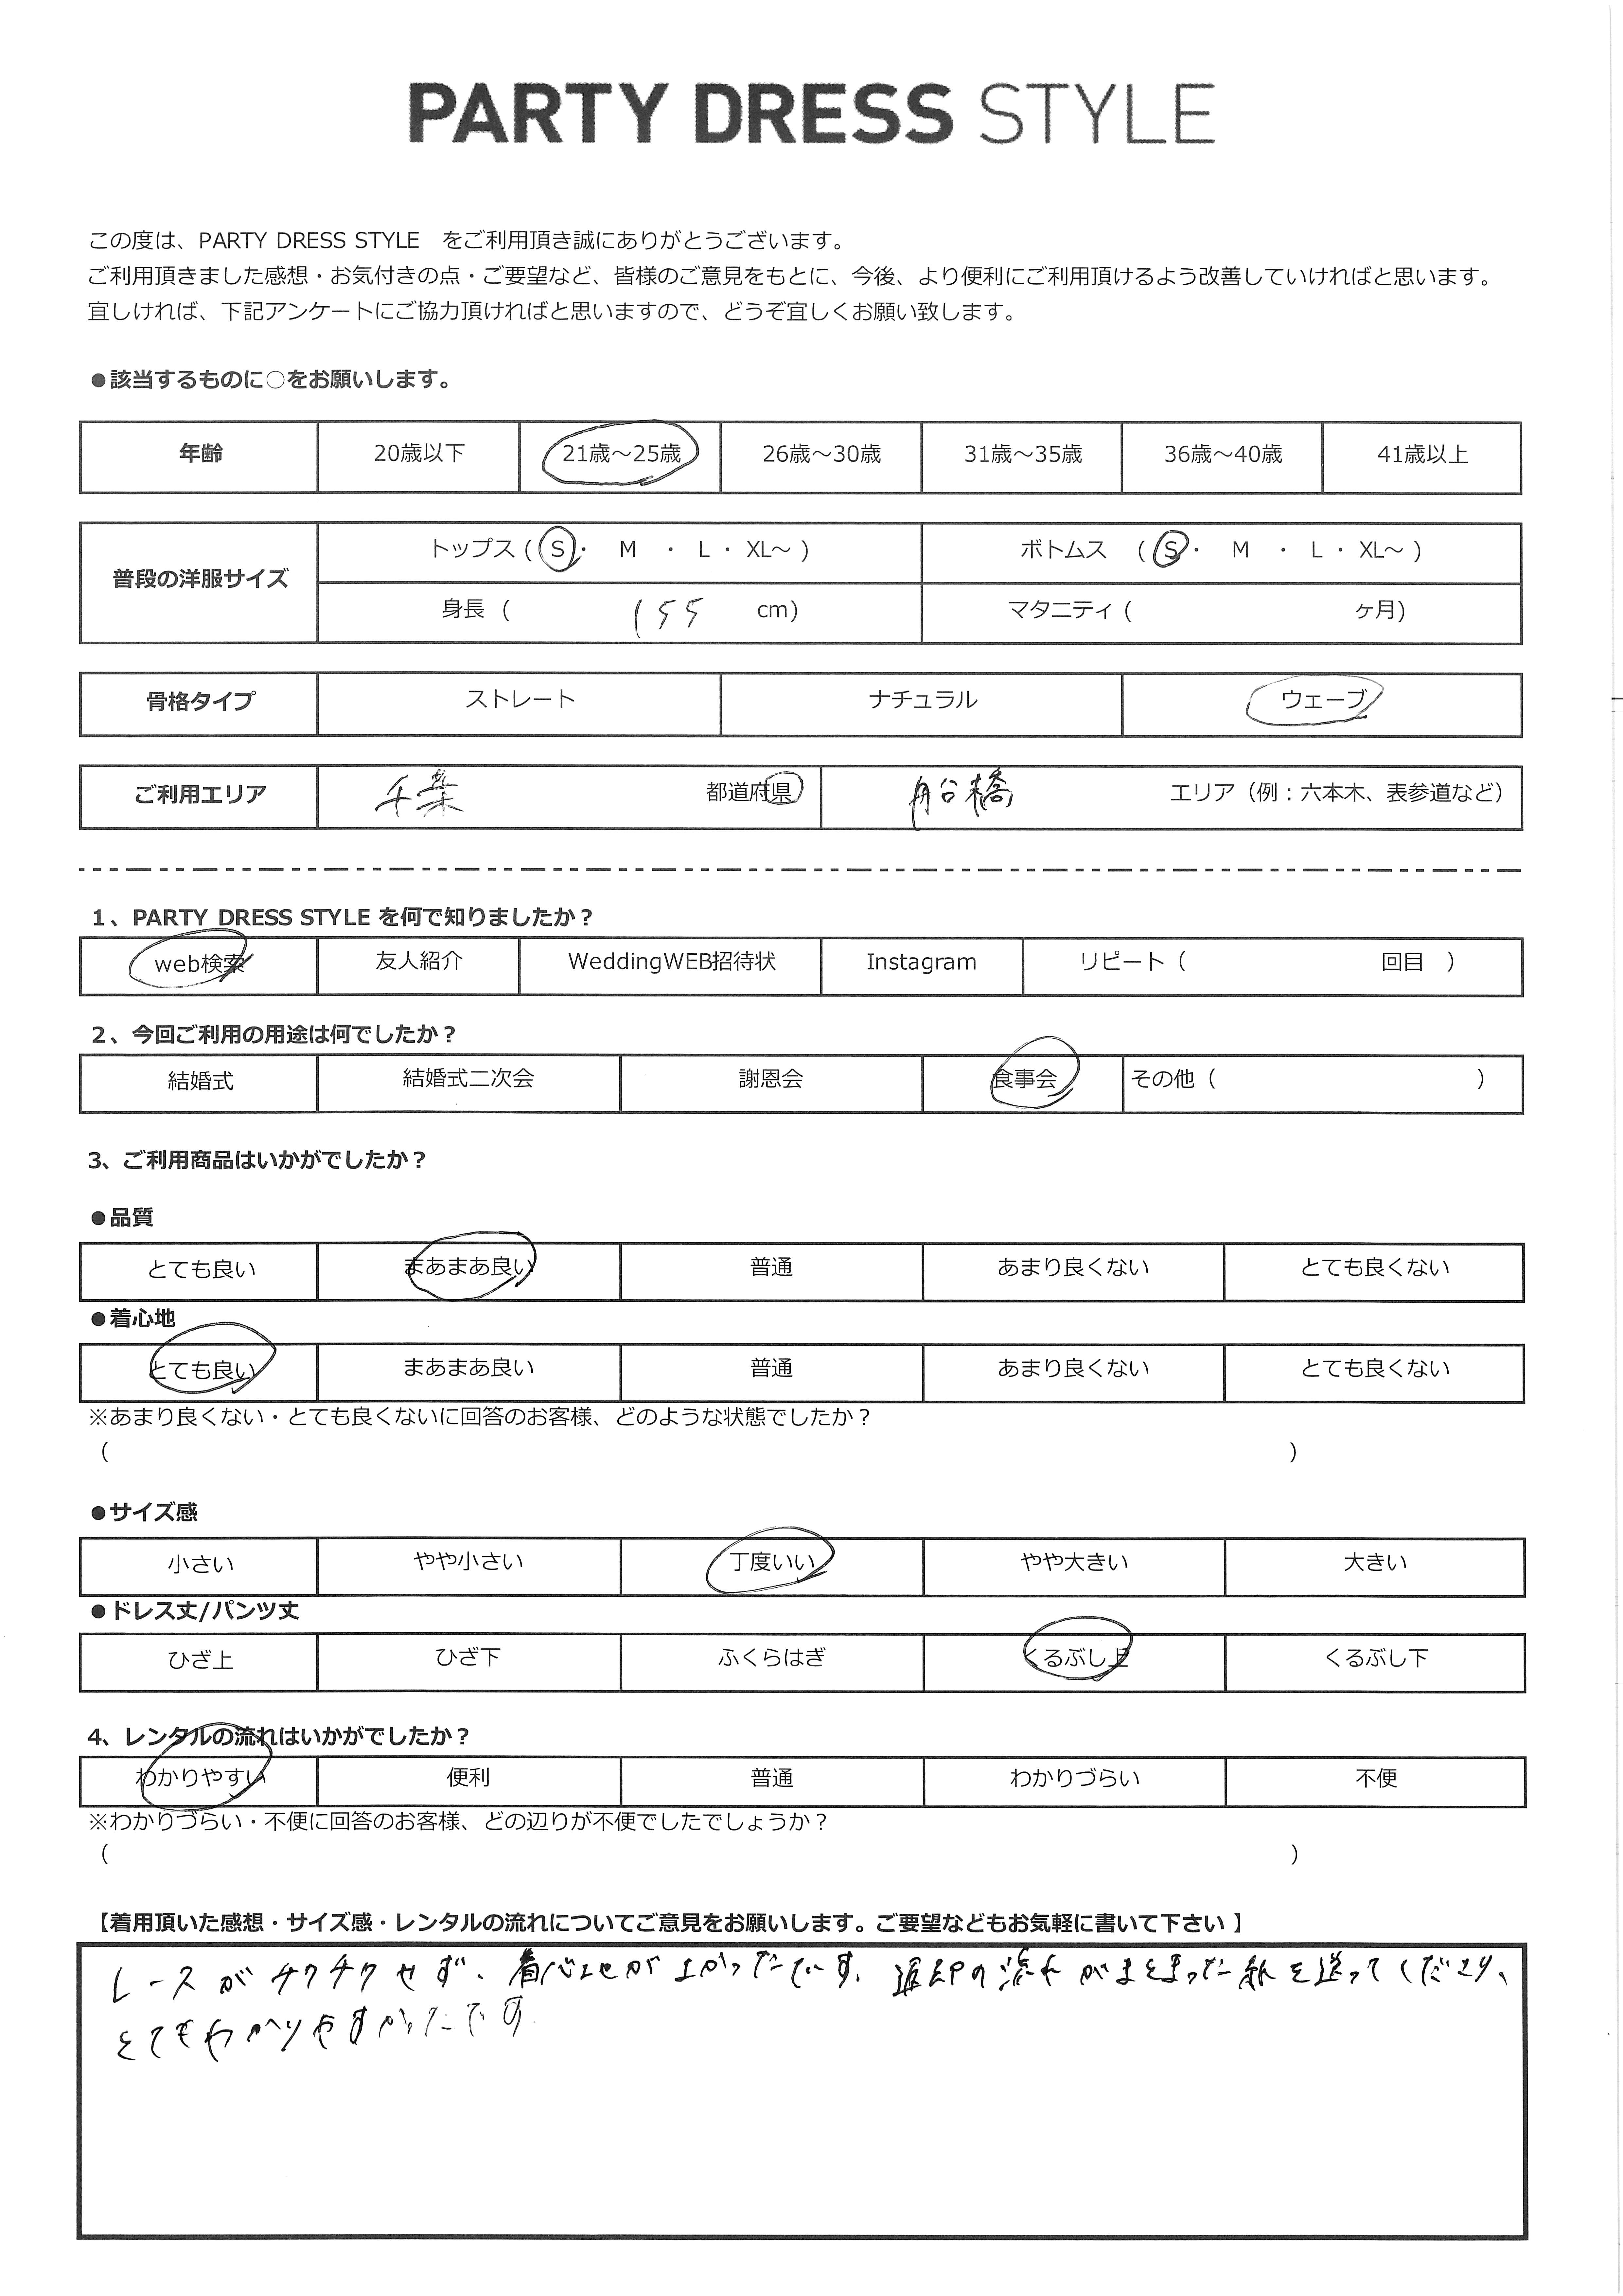 PARTY DRESS STYLE
この度は、PARTY DRESS STYLE　をご利用頂き誠にありがとうございます。
ご利用頂きました感想・お気付きの点・ご要望など、皆様のご意見をもとに、今後、より便利にご利用頂けるよう改善していければと思います。
宜しければ、下記アンケートにご協力頂ければと思いますので、どうぞ宜しくお願い致します。
●該当するものに○をお願いします。
年齢 20歳以下 21歳～25歳 26歳～30歳 31歳～35歳 36歳～40歳 41歳以上
普段の洋服サイズ
トップス ( S ・ M ・ L ・ XL～ ) ボトムス ( S ・ M ・ L ・ XL～ )
身長 ( 155 cm) マタニティ ( ヶ月)
骨格タイプ ストレート ナチュラル ウェーブ
ご利用エリア 千葉 都道府県 船橋 エリア（例：六本木、表参道など）
1、PARTY DRESS STYLE を何で知りましたか？
web検索 友人紹介 WeddingWEB招待状 Instagram リピート（ 回目 ）
2、今回ご利用の用途は何でしたか？
結婚式 結婚式二次会 謝恩会 食事会 その他（ ）
3、ご利用商品はいかがでしたか？
●品質
とても良い まあまあ良い 普通 あまり良くない とても良くない
●着心地
とても良い まあまあ良い 普通 あまり良くない とても良くない
※あまり良くない・とても良くないに回答のお客様、どのような状態でしたか？
（ ）
●サイズ感
小さい やや小さい 丁度いい やや大きい 大きい
●ドレス丈/パンツ丈
ひざ上 ひざ下 ふくらはぎ くるぶし上 くるぶし下
4、レンタルの流れはいかがでしたか？
わかりやすい 便利 普通 わかりづらい 不便
※わかりづらい・不便に回答のお客様、どの辺りが不便でしたでしょうか？
（ ）
【着用頂いた感想・サイズ感・レンタルの流れについてご意見をお願いします。ご要望などもお気軽に書いて下さい 】
レースがチクチクせず、着心地がよかったです。返却の流れがまとまった紙を送ってくださり、
とてもわかりやすかったです。